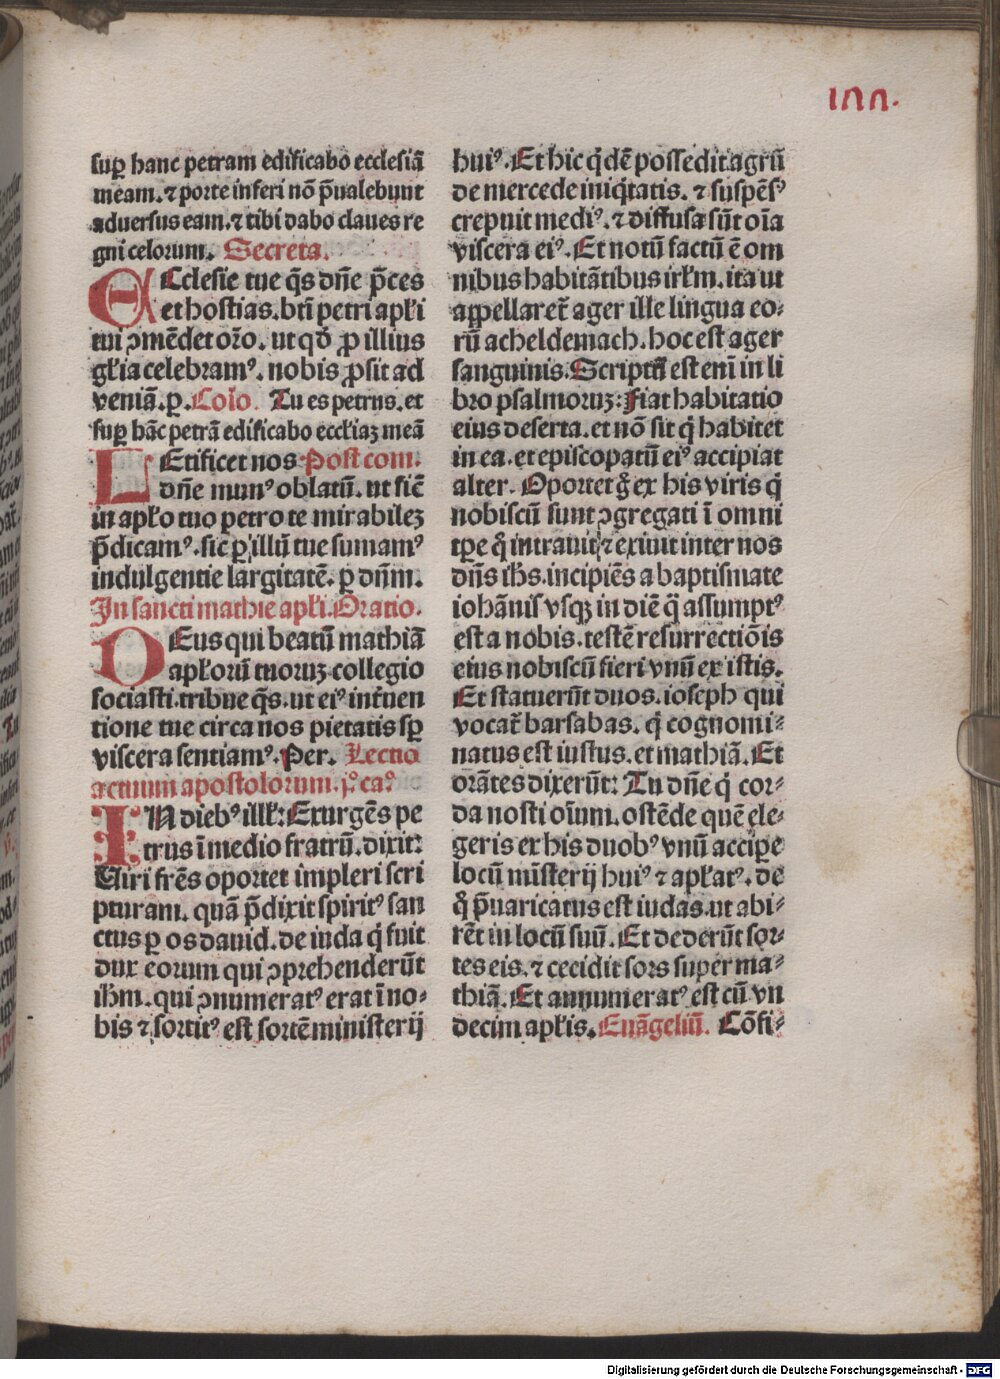 inn.
sup̲ hanc petram edificabo ecclesiā
meam. ⁊ porte inferi nō p̄ualebunt
aduersus eam. ⁊ tibi dabo claues re
gni celorum. Secreta.
ECclesie tue q̄s dn̄e p̄ces
et hostias. bt̄i petri apl̄i
tui ꝯmēdet or̄o. ut qd̄ ꝓ illius
gl̄ia celebramꝰ. nobis ꝓsit ad
veniā. ꝑ. Cōio. Tu es petrus. et
suꝑ hāc petrā edificabo eccl̄iaꝫ meā
LEtificet nos Post com.
dn̄e munꝰ oblatū. ut sic̄
in apl̄o tuo petro te mirabileꝫ
p̄dicamꝰ. sic ꝑ illū tue sumamꝰ
indulgentie largitatē. ꝑ dn̄m.
In sancti mathie apl̄i. Oratio.
DEus qui beatū mathiā
apl̄orū tuoruꝫ collegio
sociasti. tribue q̄s. ut eiꝰ int̄uen
tione tue circa nos pietatis sꝑ
viscera sentiamꝰ. Per. Lectio
actuum apostolorum. pꝰ caꝰ
IN diebꝰ ill̄: Exurgēs pe
trus ī medio fratrū. dixit:
Uiri fr̄es oportet impleri scri
pturam. quā p̄dixit spiritꝰ san
ctus ꝑ os dauid. de iuda q̄ fuit
dux eorum qui ꝯprehenderūt
ih̄m. qui ꝯnumeratꝰ erat ī no⸗
bis ⁊ sortitꝰ est sortē ministerij
huiꝰ. Et hic q̇dē possedit agrū
de mercede iniq̇tatis. ⁊ suspēsꝰ
crepuit mediꝰ. ⁊ diffusa sūt oīa
viscera eiꝰ. Et notū factū ē om
nibus habitātibus irl̄m. ita ut
appellaret̄ ager ille lingua eo⸗
rū acheldemach. hoc est ager
sanguinis. Scriptū est eni in li
bro psalmoruꝫ: Fiat habitatio
eius deserta. et nō sit q̇ habitet
in ea. et episcopatū eiꝰ accipiat
alter. Oportet g̊ ex his viris q̇
nobiscū sunt ꝯgregati ī omni
tp̄e q̊ intrauit ⁊ exiuit inter nos
dn̄s ih̄s. incipiēs a baptismate
iohānis vsqꝫ in diē q̄ assumptꝰ
est a nobis. testē resurrectiōis
eius nobiscū fieri vnū ex istis.
Et statuerūt duos. ioseph qui
vocat̄ barsabas. q̇ cognomi⸗
natus est iustus. et mathiā. Et
orātes dixerūt: Tu dn̄e q̇ cor⸗
da nosti oīum. ostēde quē ele⸗
geris ex his duobꝰ vnū accipe
locū mīsterij huiꝰ ⁊ apl̄atꝰ. de
q̊ p̄uaricatus est iudas. ut abi⸗
rēt in locū suū. Et dederūt sor⸗
tes eis. ⁊ cecidit sors super ma⸗
thiā. Et annumeratꝰ est cū vn
decim apl̄is. Euāgeliū. Cōfi⸗
Digitalisierung gefördert durch die Deutsche Forschungsgemeinschaft - DFG